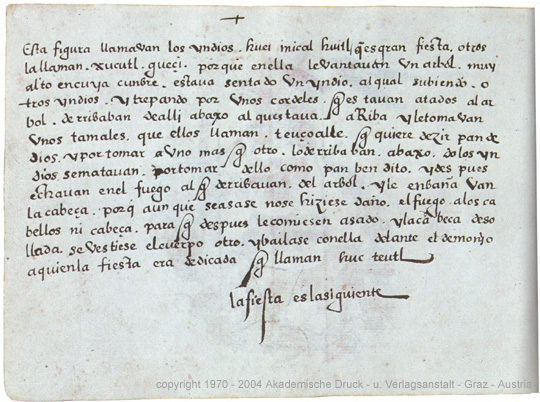 Esta figura llamavan los yndios. huei mical huitl, q̃ es gran fiesta, otros
la llaman. xucutl. gueçi. porque enella levantavan Un arbol. muy
alto en cuya cunbre. estava sentado Un yndio. al qual subiendo. o
tros yndios. y trepando por Unos cordeles. q̃ estavan atados al ar
bol. derribaban de alli abaxo al questava. aRiba y le tomavan
Unos tamales, que ellos llaman. teuçoalle. q̃ quiere dezir pan de
dios. y por tomar a Uno mas q̃ otro. lo derribaban. abaxo. do los yn
dios se matavan. por tomar dello como pan bendito. y des pues
echavan en el fuego al q̃ derribavan. del arbol. y le enbaña van
la cabeça. porq̃ aun que seasase nose hiziese daño. el fuego. alos ca
bellos ni cabeça. para q̃ des pues le comiesen asado. y la ca beça deso
llada. se vestiese el cuerpo otro. y bailase conella delante el demonyo
a quien la fiesta era dedicada q̃ llaman huc teutl
la fiesta es la siguiente
copyright 1970 - 2004 Akademische Druck - u. Verlagsanstalt - Graz - Austria